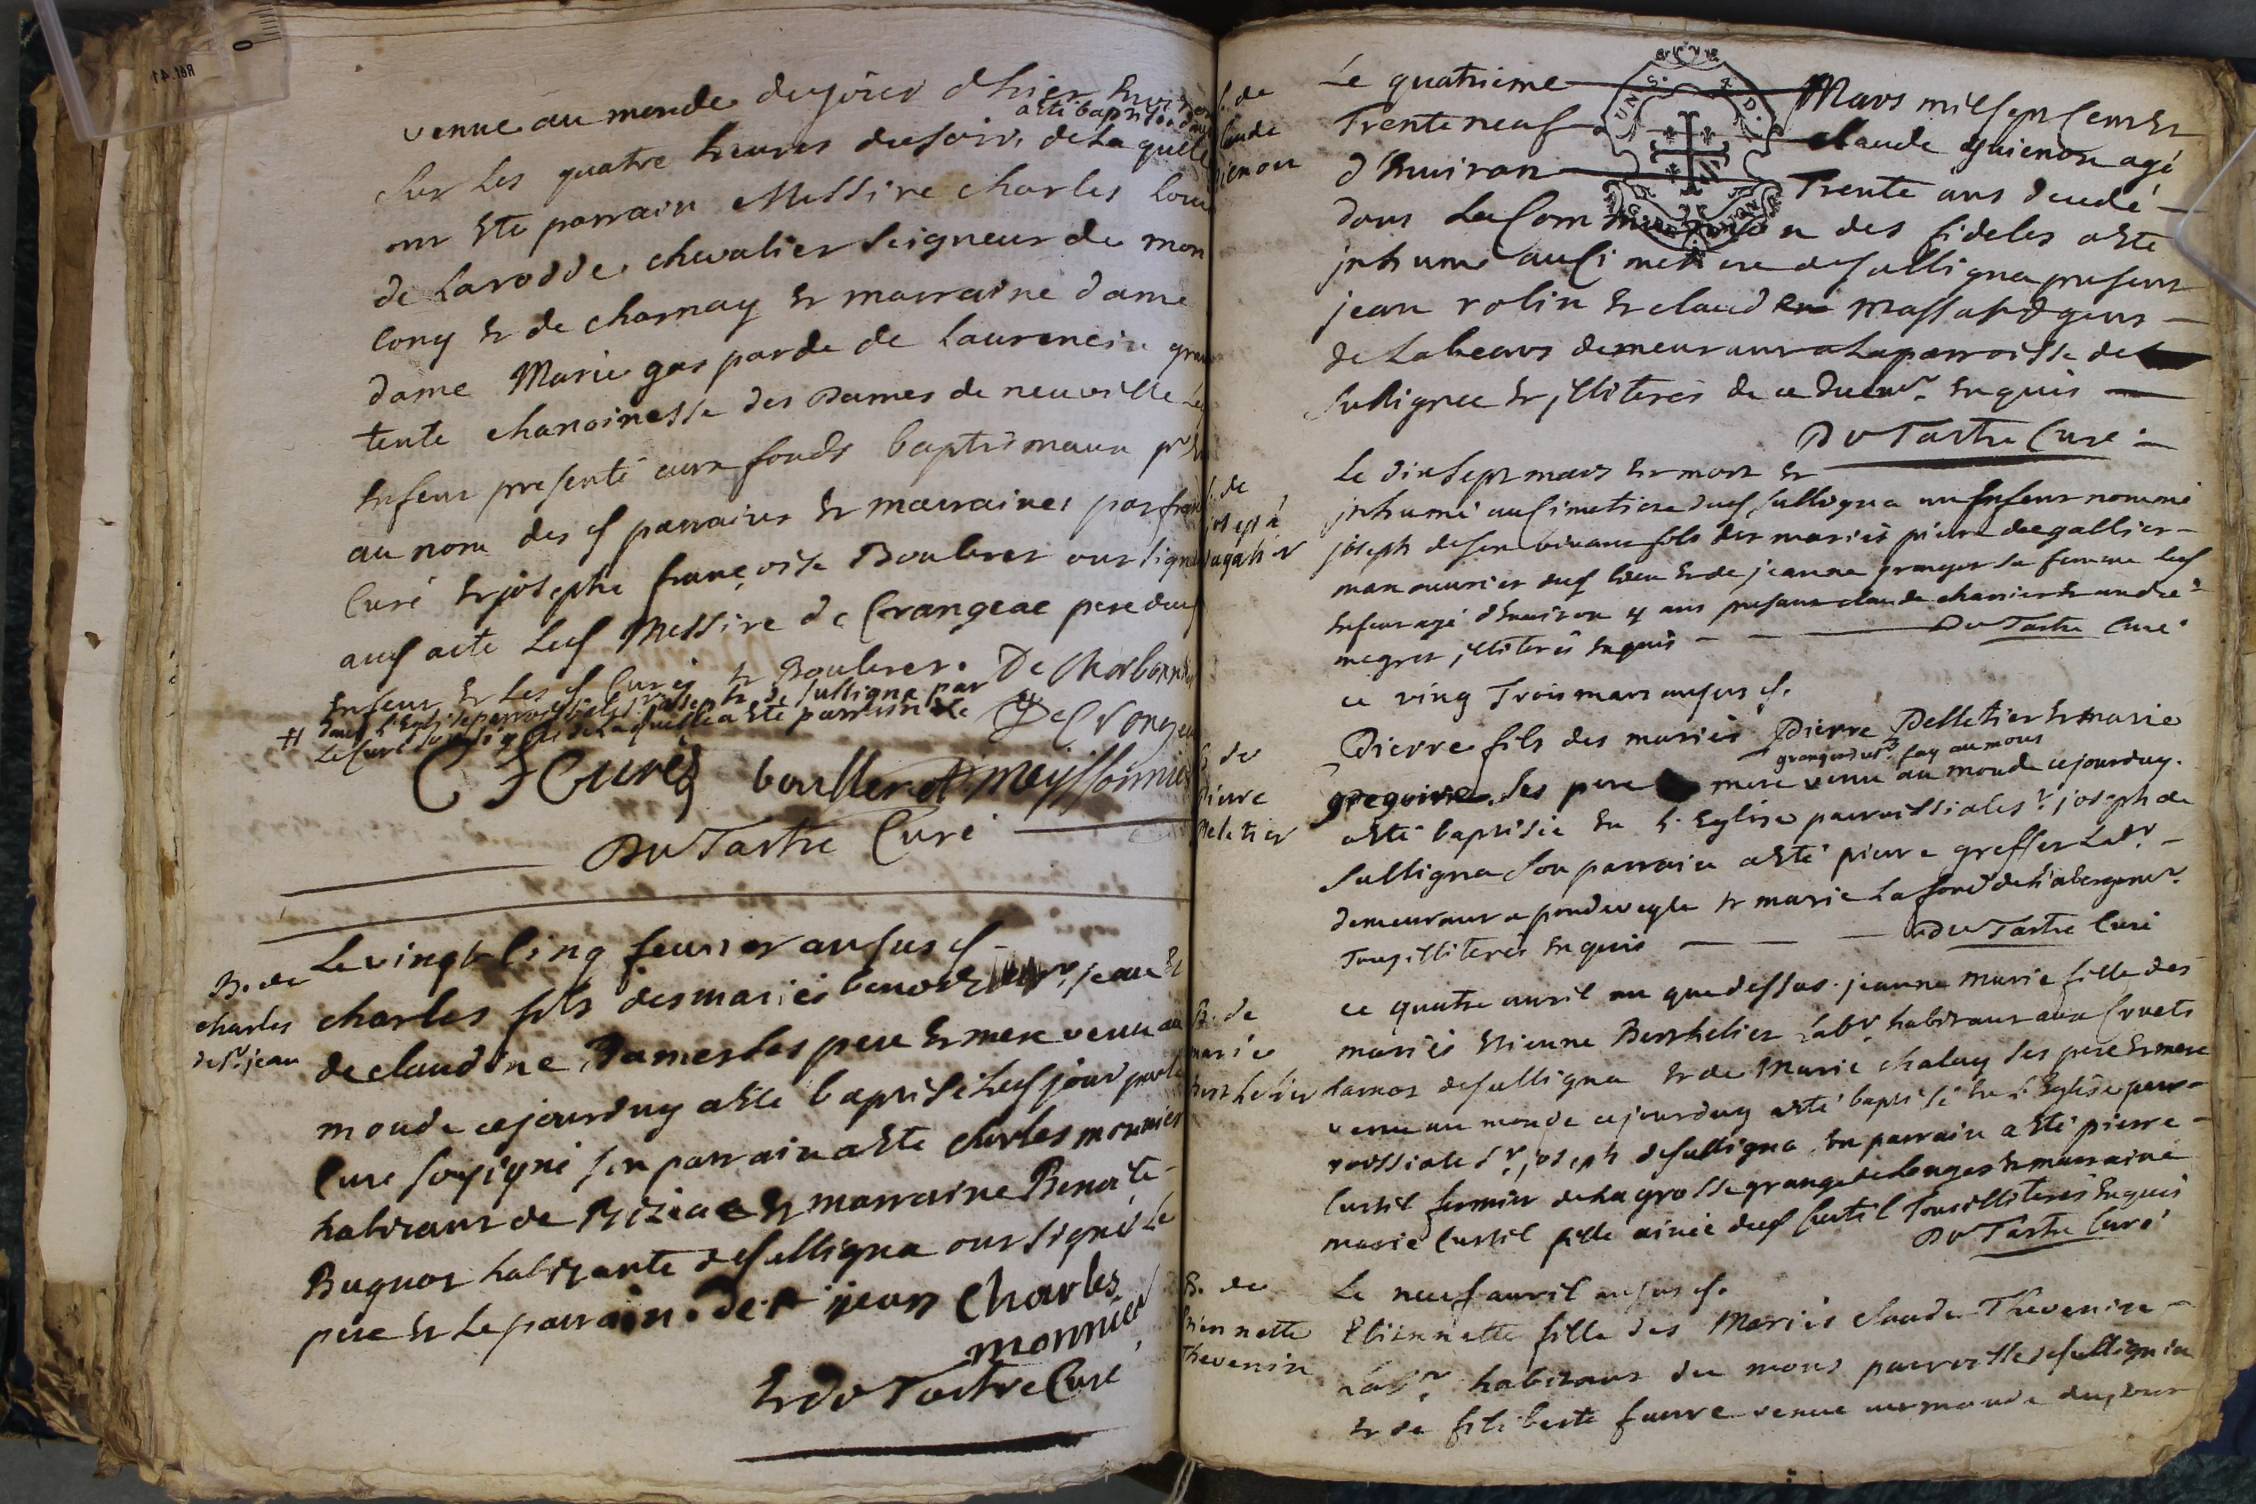 venue au monde du jour d'hier
a esté baptisée dans
sur les quatre heures du soir, de la quelle
ont Eté parrain Messire Charles Loui
de Larodde chevalier seigneur de mon
cony Et de charnay Et marraine dame
dame Marie gasparde de Laurencin
tente chanoinesse des Dames de neuville
Enfent presenté aux fonds baptismaux pr
au nom des sf parrains Et marraines par
Curé Et josephe françoise Boulerer ont signé
audf acte Ledf Messire de Crangeac pere dud
Enfent Et les sf Curés Et Boulerer. De Chorbonn
# dans l'Eglise parroissiale st joseph de sulligna par
Le Curé soussigné de la quelle a Eté parrain
Curé boulleret Meyssonnier
Du Tartre Curé
B. de
charles
de st. jean
Le vingt Cinq feurier an sus sf.
charles fils des mariés benoit st. jean Et
de claudine Damerles pere Et mere venu au
monde cejourduy a Eté baptisé ledf jour par le
Curé sousigné son parrain a Eté charles monnier
habitant de Biziac Et marraine Benoite
Bugnot habitante de sulligna ont signé Le
pere Et le parrain. de st jean Charles
monnier
Et du Tartre Curé
S. de
claude
guienon
Le quatrieme Mars mil sept Cents Et
Trente neuf claude guienon agé
d'Environ Trente ans decedé
dans La Communion des fideles a Eté
jnhumé au simetiere de sulligna presents
jean rolin Et claude massard gens
de Labeurs demeurant a la parroisse de
sulligna Et jlliterés de ce Duemt. Enquis
Du Tartre Curé
S. de
joseph
dugalier
Le dix sept mars Est mort Et
jnhumé au simetiere dudf sulligna un Enfent nommé
joseph de son vivant fils des mariés pierre degallier
manouvrier dudf lieu Et de jeanne granger sa femme ledf
Enfent agé d'Environ 4 ans presents claude charrier Et andré
megret jlliterés Enquis Du Tartre Curé
ce ving Trois mars an sus sf.
B. de
pierre
Peletier
Pierre fils des mariés Pierre Pelletier Et marie
grangers du fay au mons
gregoire ses pere mere venu au monde cejourduy
a Eté baptisée En l'Eglise parroissiale st. joseph de
sulligna son parrain a Eté pierre greffet Labr.
demeurant a pondeveyle Et marie Lafond de l'abergemt.
Tous jlliterés Enquis Du Tartre Curé
B. de
marie
berthelier
ce quatre auril an que dessus. jeanne marie fille des
mariés Etienne Berthelier Labr. habitant aux Cruets
hamos de sulligna Et de Marie chalay ses pere Et mere
venue au monde cejourduy a Eté baptisé En l'Eglise par
roissiale st. joseph de sulligna son parrain a Eté pierre
Curtil fermier de la grosse grange de longes Et marraine
marie Curtil fille ainée dudf Curtil Tous jlliterés Enquis
Du Tartre Curé
B. de
Etiennette
Thevenin
Le neuf auril an sus sf.
Etiennette fille des Mariés claude Thevenin
Labr. habitant du mons parroisse de sulligna
Et de filiberte faure venue au monde du jour